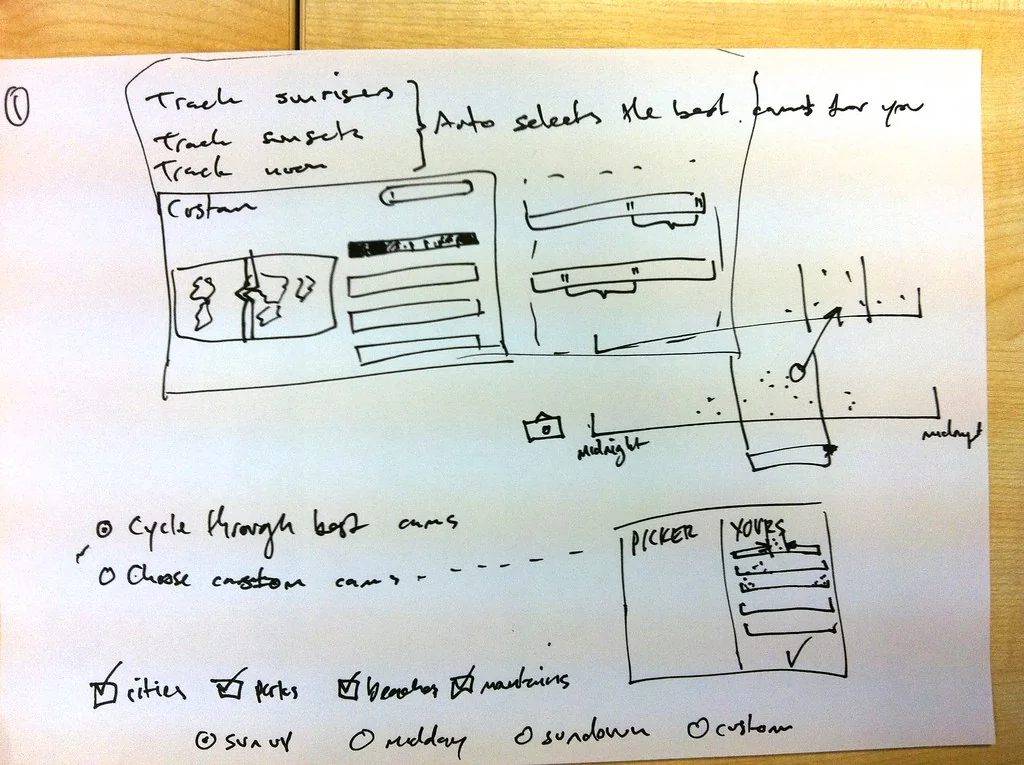 1
Track sunrises
Track sunsets
Track noon
Auto selects the best cams for you
Custom
midnight
midnight
Cycle through best cams
Choose custom cams
PICKER
YOURS
cities parks beaches mountains
sun up midday sundown custom